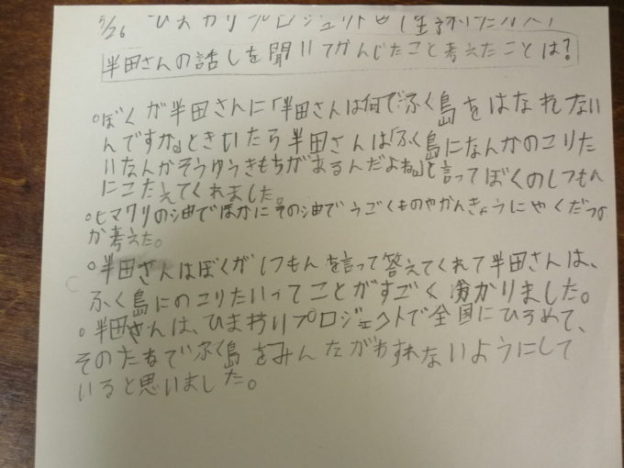 5/26 ひまわりプロジェクト
半田さんの話しを聞いてかんじたこと考えたことは?
○ぼくが半田さんに「半田さんは何でふく島をはなれない
んですか」ときいたら半田さんは「ふく島になんかのこりた
いなんかそうゆうきもちがあるんだよね」と言ってぼくのしつもん
にこたえてくれました。
○ヒマワリの油でほかにその油でうごくものやかんきょうにやくだつ
か考えた。
○半田さんはぼくがしつもんを言って答えてくれて半田さんは、
ふく島にのこりたいってことがすごく分かりました。
○半田さんは、ひまわりプロジェクトで全国にひろめて、
そのたねでふく島をみんながわすれないようにして
いると思いました。